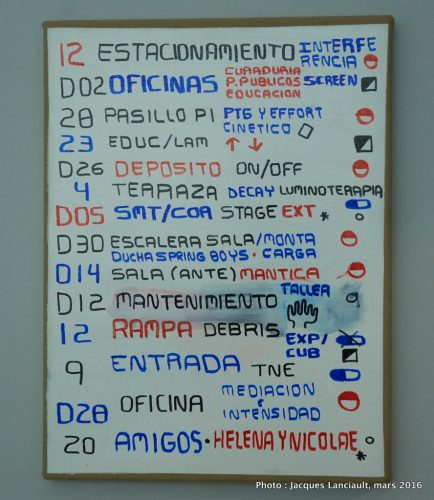 12 ESTACIONAMIENTO INTERFE
RENCIA
D02 OFICINAS CURADURIA SCREEN
P. PUBLICOS
EDUCACION
28 PASILLO P1 PTG Y EFFORT
CINETICO
23 EDUC/LAM ↑ ↓
D26 DEPOSITO ON/OFF
4 TERRAZA DECAY LUMINOTERAPIA
D05 SMT/COA STAGE EXT *
D30 ESCALERA SALA/MONTA
DUCHA SPRING BOYS · CARGA
D14 SALA (ANTE) MANTICA
D12 MANTENIMIENTO TALLER
12 RAMPA DEBRIS
EXP/
CUB
9 ENTRADA TNE
D28 OFICINA MEDIACION
E
INTENSIDAD
20 AMIGOS · HELENA Y NICOLAE *
Photo : Jacques Lanciault, mars 2016